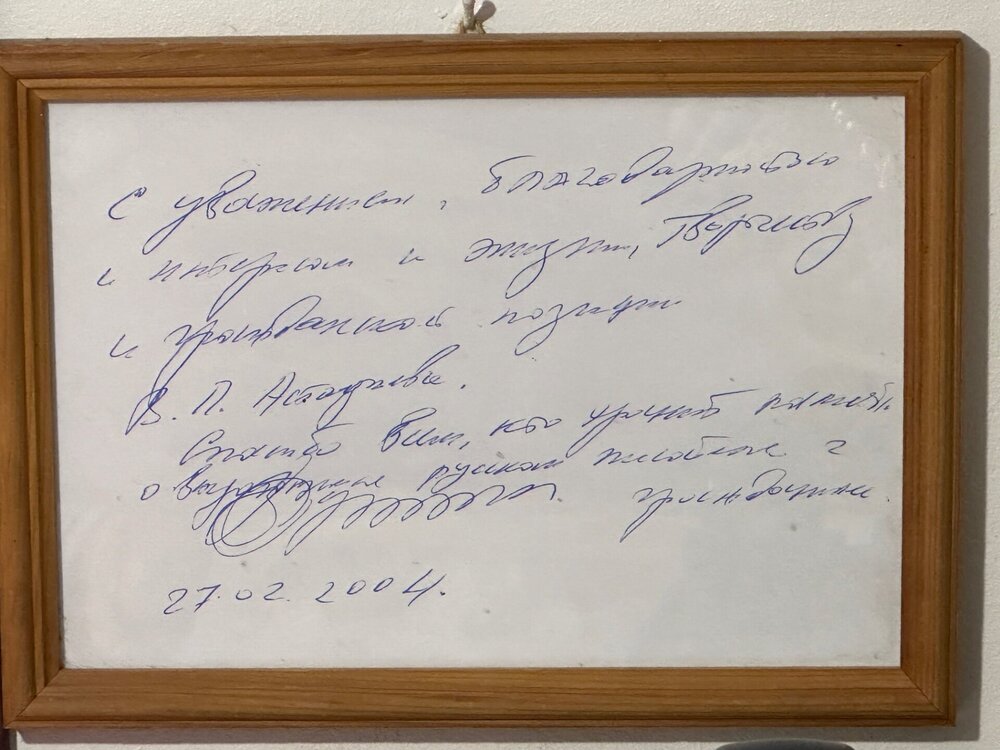 С уважением, благодарностью
и интересом к жизни, творчеству
и гражданской позиции
В. П. Астафьева.
Спасибо Всем, кто хранит память
о выдающемся русском писателе и
гражданине.
27.02.2004.